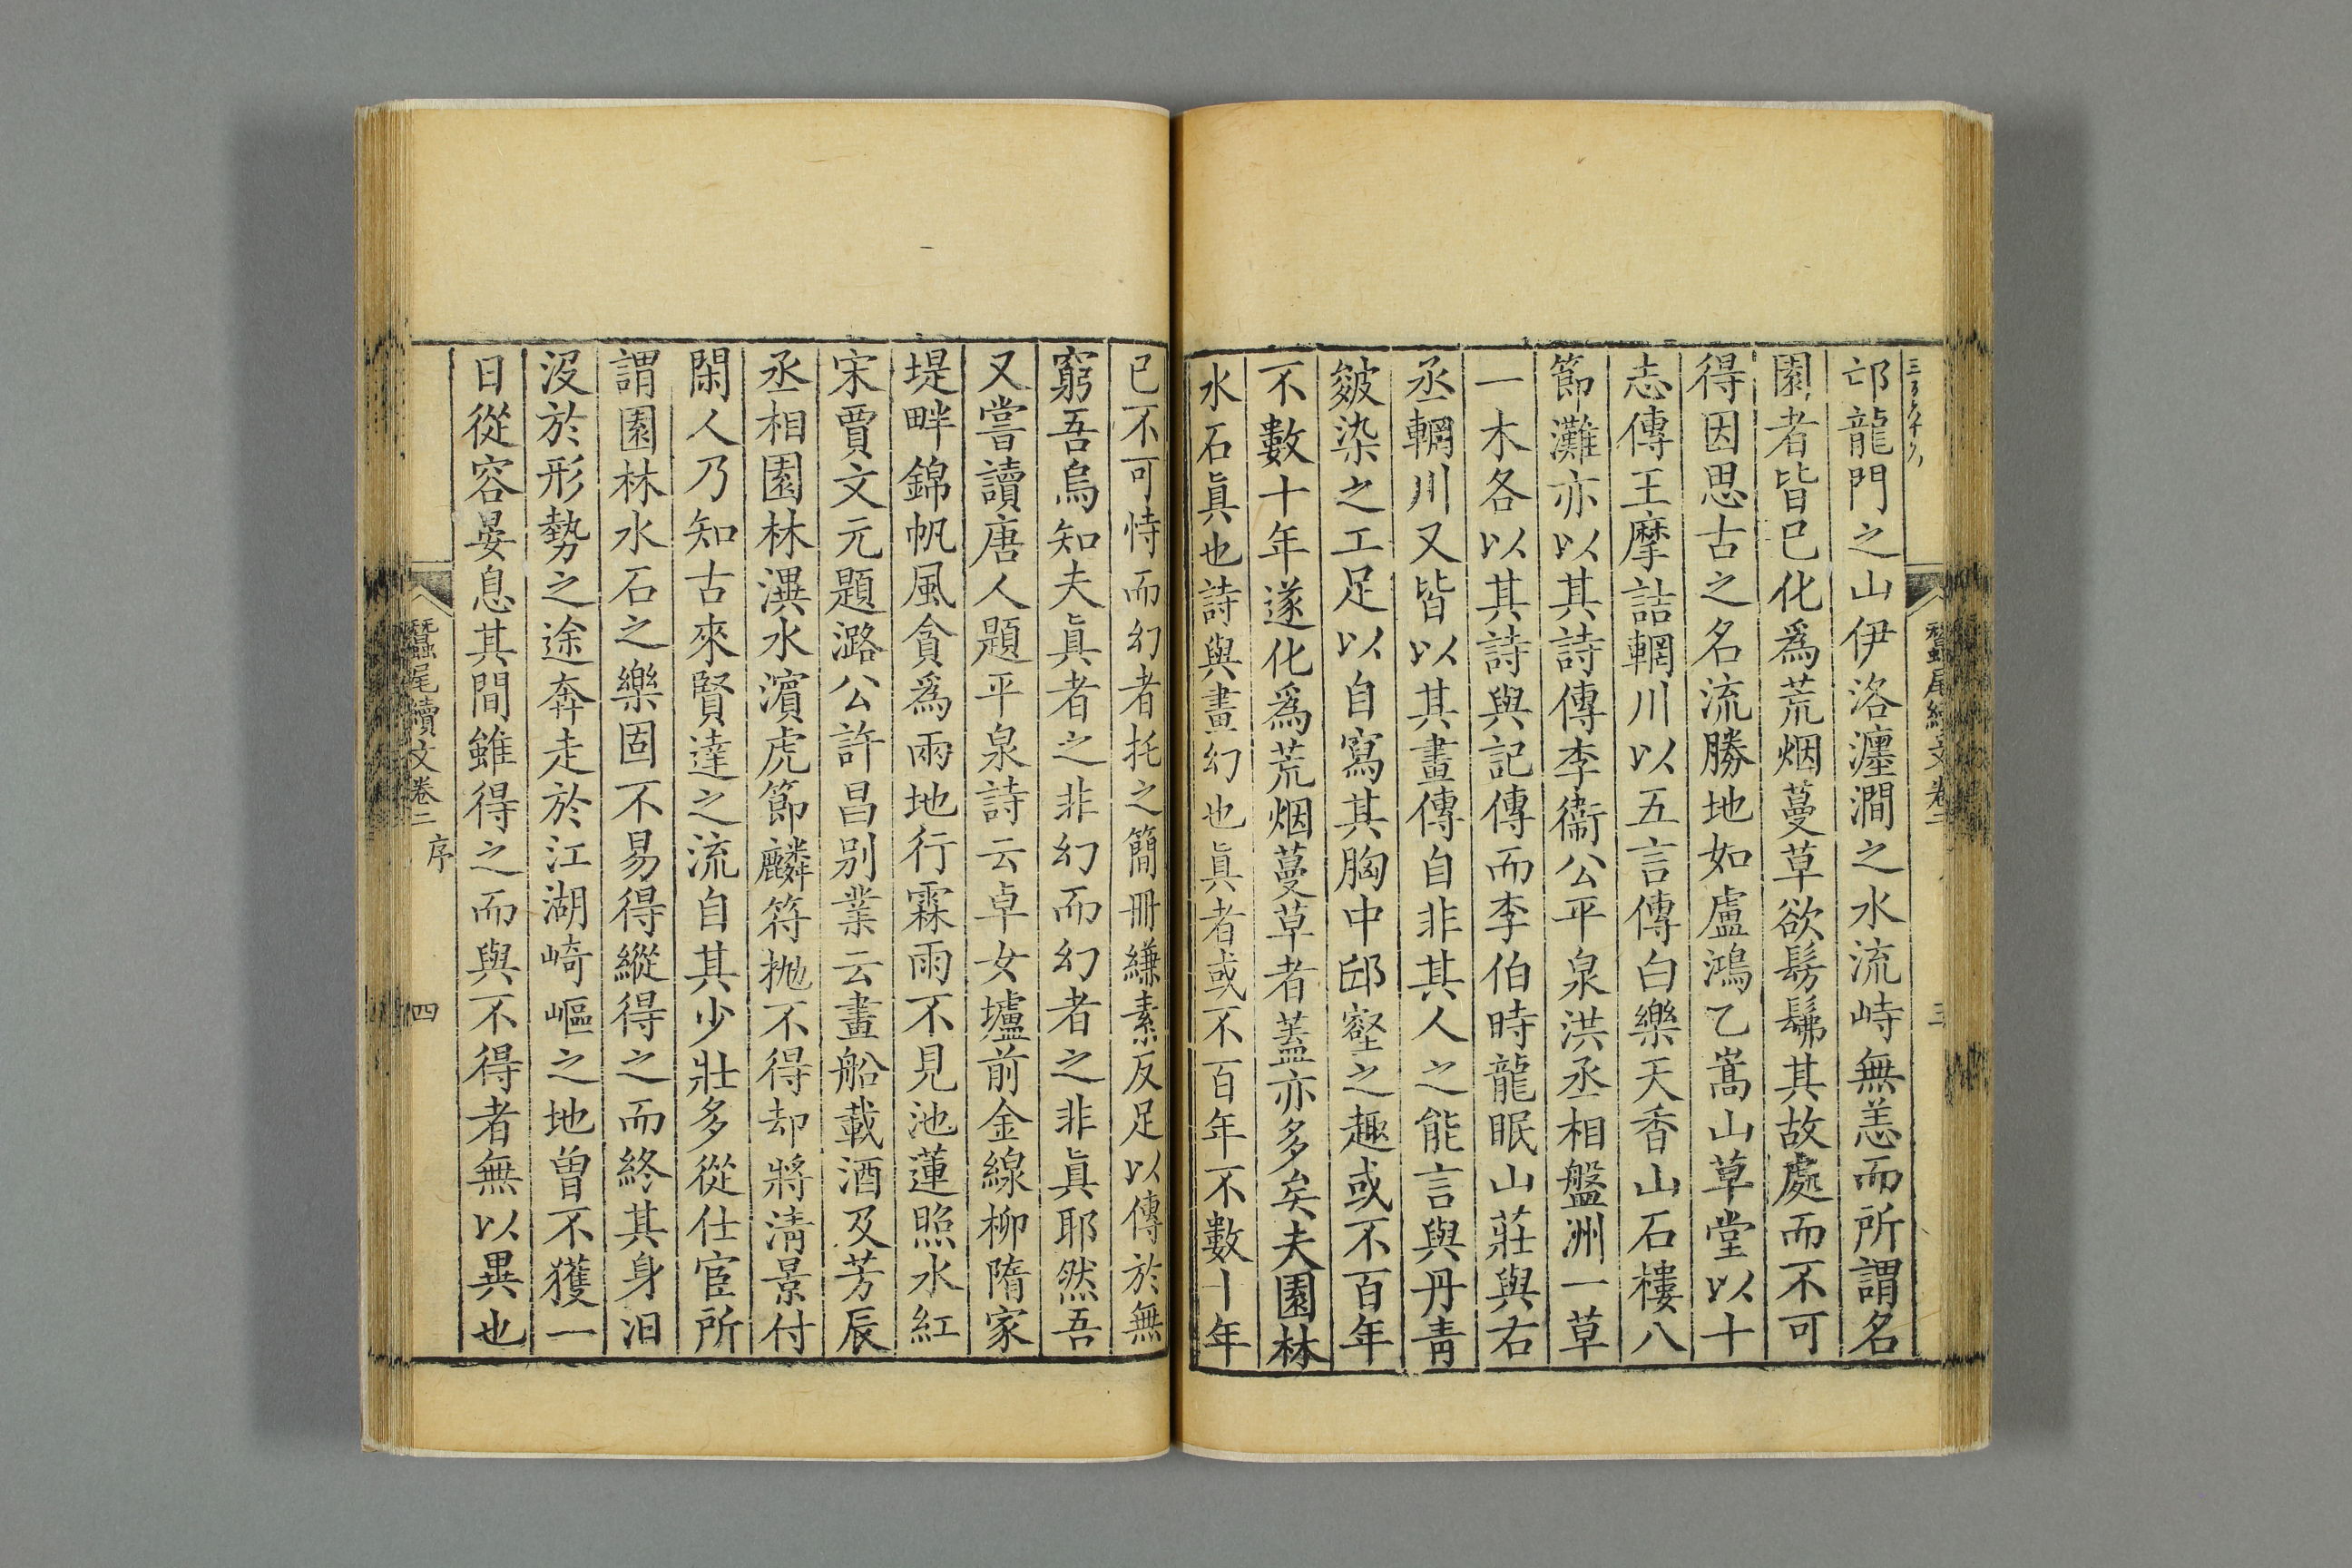 蠶尾續文卷二
三
邙龍門之山伊洛瀍澗之水流峙無恙而所謂名
園者皆已化爲荒烟蔓草欲髣髴其故處而不可
得因思古之名流勝地如盧鴻乙嵩山草堂以十
志傳王摩詰輞川以五言傳白樂天香山石樓八
節灘亦以其詩傳李衞公平泉洪丞相盤洲一草
一木各以其詩與記傳而李伯時龍眠山莊與右
丞輞川又皆以其畫傳自非其人之能言與丹青
皴染之工足以自寫其胸中邱壑之趣或不百年
不數十年遂化爲荒烟蔓草者蓋亦多矣夫園林
水石眞也詩與畫幻也眞者或不百年不數十年
已不可恃而幻者托之簡冊縑素反足以傳於無
窮吾烏知夫眞者之非幻而幻者之非眞耶然吾
又嘗讀唐人題平泉詩云卓女壚前金線柳隋家
堤畔錦帆風貪爲雨地行霖雨不見池蓮照水紅
宋賈文元題潞公許昌别業云畫船載酒及芳辰
丞相園林潩水濱虎節麟符抛不得却將淸景付
閑人乃知古來賢達之流自其少壯多從仕宦所
謂園林水石之樂固不易得縱得之而終其身汩
没於形勢之途奔走於江湖崎嶇之地曾不獲一
日從容晏息其間雖得之而與不得者無以異也
蠶尾續文卷二 序
四